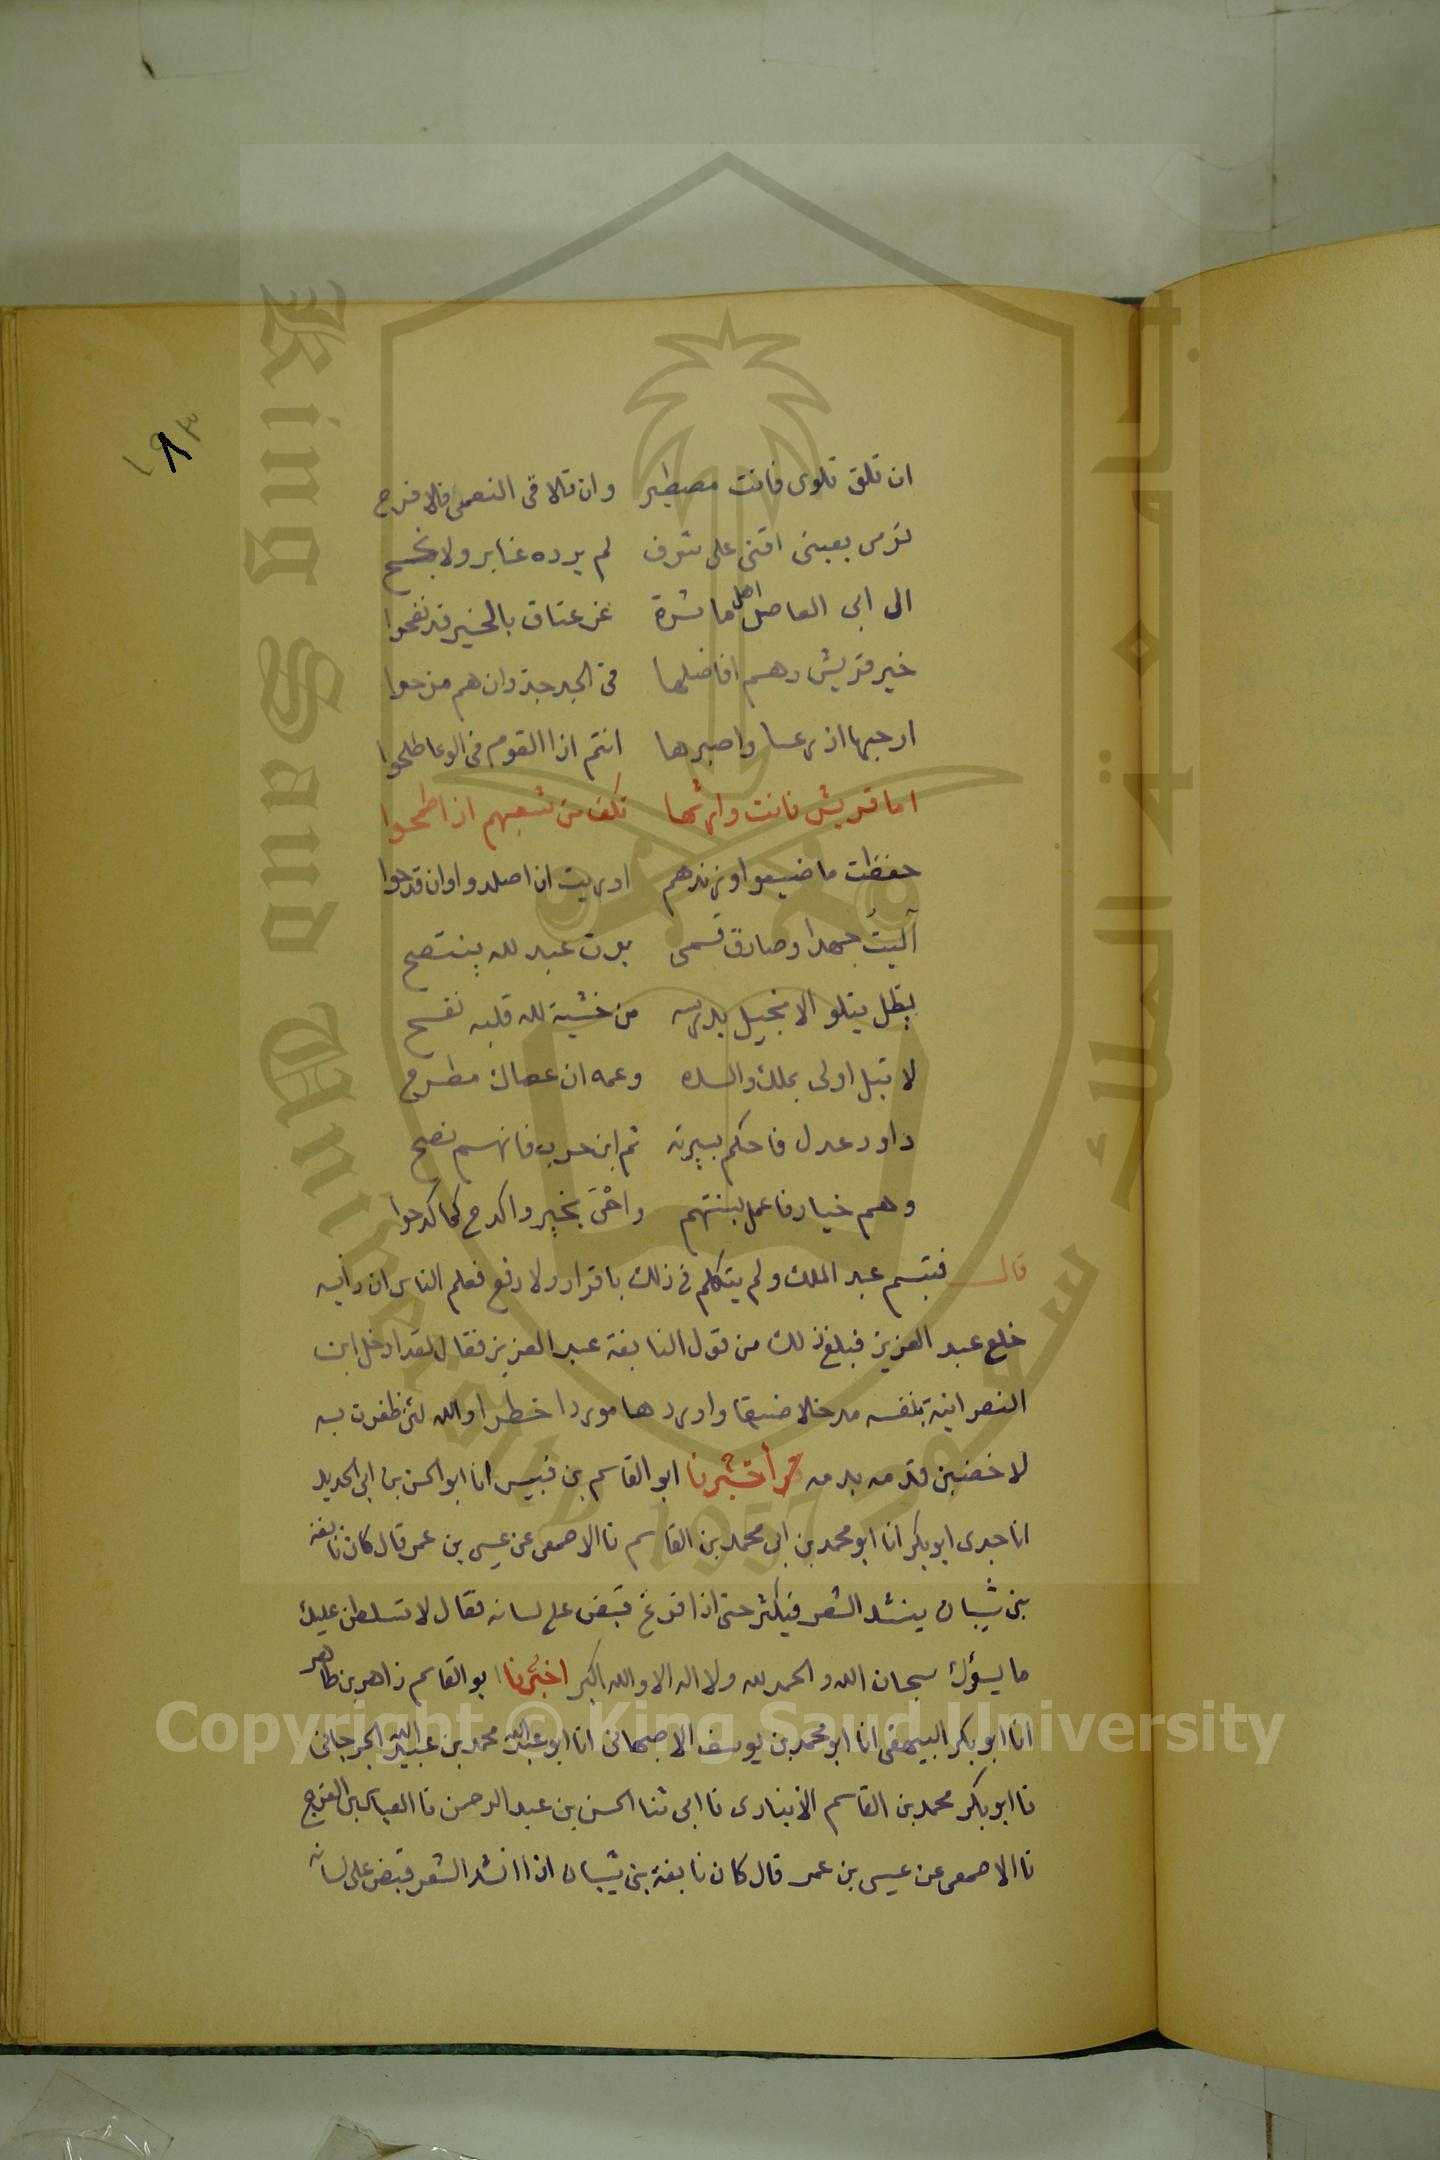 ان تلق تلوى فانت مصطبر وان تلاقى النعمى فلا فرح
ترمى بعينى اقنى على شرف لم يرده عنابر ولا
الى ابى العاصل اهل ماشرة غر عتاق بالخير قد نفحوا
خير قريش وهم افاضلها فى الجد جد وان هم مزحوا
ارجبها اذرعا واصبرها انتم اذا القوم فى الوعا طلحوا
اما قريش فانت وارثها تكف من شعبهم اذا طمحوا
حفظت ما ضيعوا وزندهم اوريت ان اصلدوا وان قدحوا
آليتُ جهدا وصادق قسمى برت عبد لله ينتصح
يظل يتلو الانجيل يدرسه من خشية لله قلبه نفح
لا تبل اولى بملك والسده وعمه ان عصاك مطرح
داود عدل فاحكم بسيرته ثم ابن حرب فانهم نصح
وهم خيار فاعمل بسنتهم واحْىَ بخير واكدح كما كدحوا
قال فتبسم عبد الملك ولم يتكلم فى ذلك باقرار ولا دفع فعلم الناس ان رأيه
خلع عبد العزيز فبلغ ذلك من قول النابغة عبد العزيز فقال لقد ادخل ابن
النصرانية بنفسه مدخلا ضيقا واوردها موردا خطرا والله لئن ظفرت به
لاخضبن قدمه بدمه أخبرنا ابو القاسم بن قبيس انا ابو الحسن بن ابى الحديد
انا جدى ابو بكر انا ابو محمد بن ابى محمد بن القاسم نا الاصمعى عن عيسى بن عمر قال كان نابغة
بنى شيبان ينشد الشعر فيكثر حتى اذا فرغ قبض على لسانه فقال لاسلطن عليك
ما يسؤك سبحان الله والحمد لله ولا اله الا والله اكبر اخبرنا ابو القاسم زاهر بن طاهر
انا ابو بكر البيهقى انا ابو محمد بن يوسف الاصبهانى انا ابو عبد الله محمد بن عبيد الله الجرجانى
نا ابو بكر محمد بن القاسم الانبارى نا ابى ثنا الحسن بن عبد الرحمن نا العباس بن الفرج
نا الاصمعى عن عيسى بن عمر قال كان نابغة بنى شيبان اذا انشد الشعر قبض على لسانه
Copyright © King Saud University
King Saud University
جامعة الملك سعود
1957